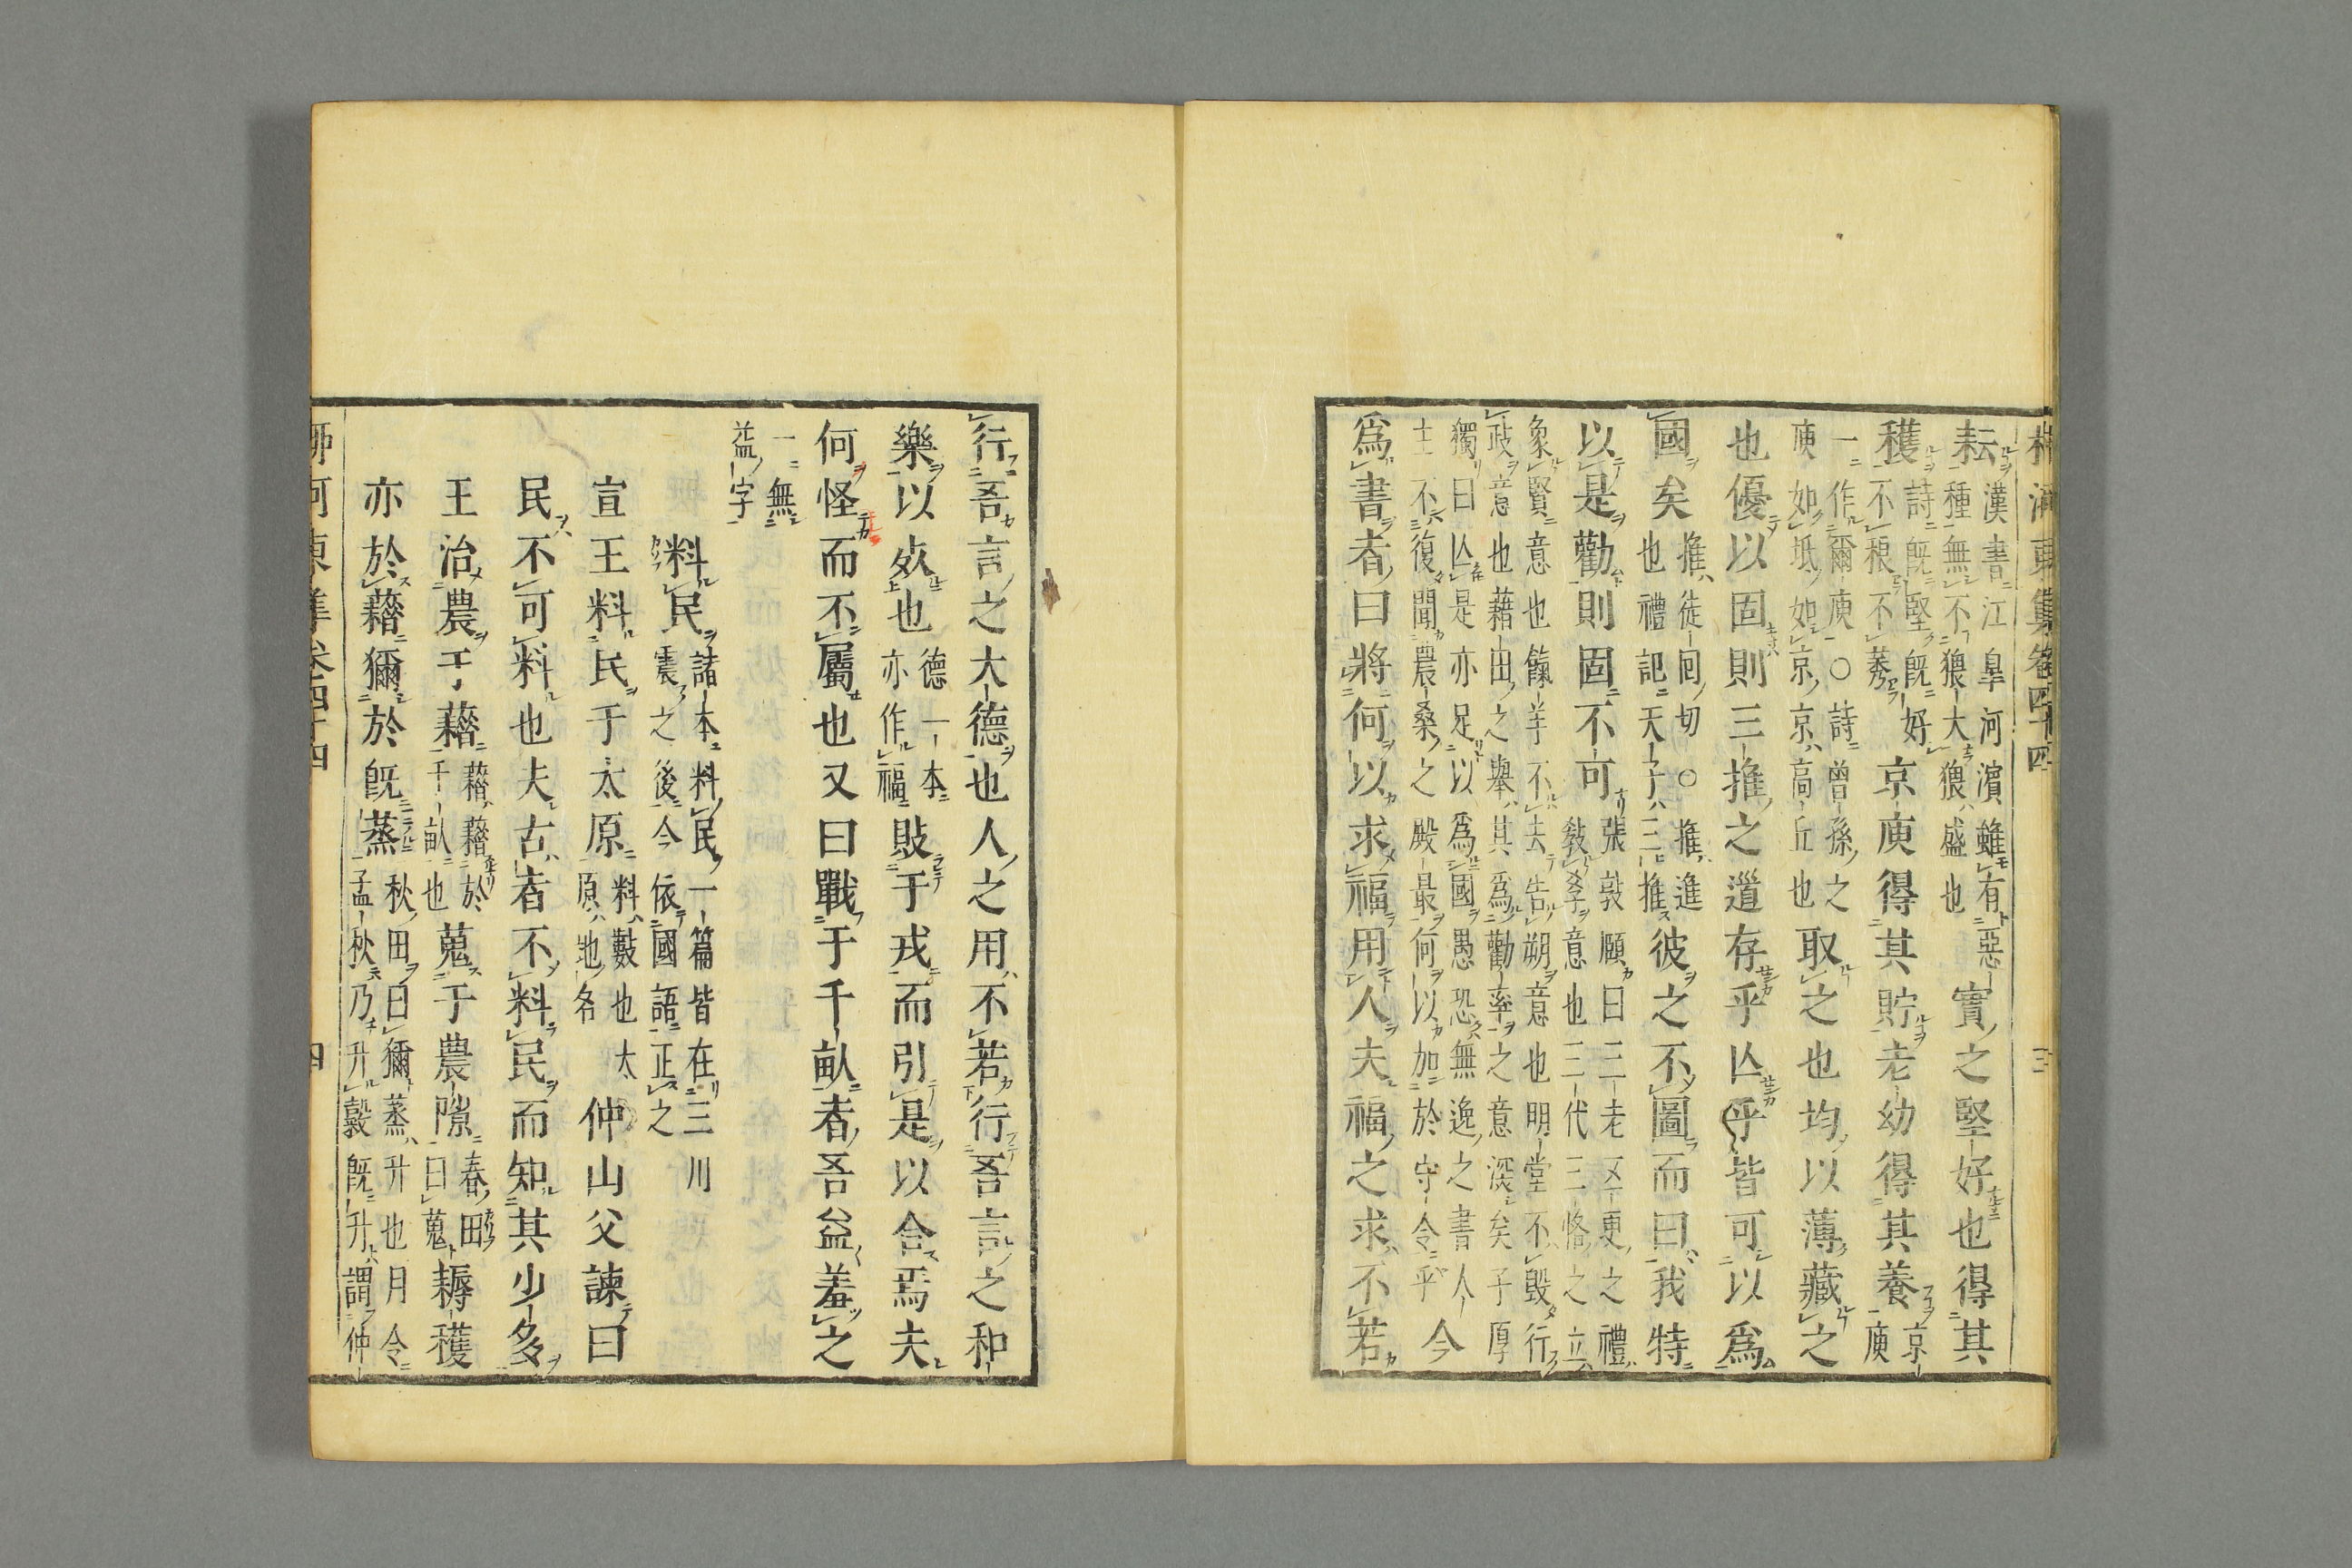 柳河東集卷四十四　三
耘漢書江皐河濵雖有惡種無不猥大猥盛也實之堅好也得其
穫詩既堅既好不稂不莠京庾得其貯老幼得其養京庾
一作爾庾○詩曾孫之庾如坻如京京高丘也取之也均以薄藏之
也優以固則三推之道存乎亾乎皆可以爲
國矣推徒回切○推進也禮記天子三推彼之不圖而曰我特
以是勸則固不可張敦頤曰三老五更之禮敎孝意也三代三恪之立
象賢意也餼羊不去告朔意也明堂不毁行政意也藉田之舉其爲勸率之意深矣子厚
獨曰亾是亦足以爲國愚恐無逸之書人士不復聞農桑之殿最何以加於守令乎今
爲書者曰將何以求福用人夫福之求不若
行吾言之大德也人之用不若行吾言之和
樂以死也德一本亦作福敗于戎而引是以合焉夫
何怪而不屬也又曰戰于千畝者吾益羞之
一無益字
料民諸本料民一篇皆在三川震之後今依國語正之
宣王料民于太原料數也太原地名仲山父諫曰
民不可料也夫古者不料民而知其少多
王治農于藉藉藉於千畝也蒐于農隙春田曰蒐耨穫
亦於藉獮於既蒸秋田曰獮蒸升也月令孟秋乃升穀既升謂仲
柳河東集卷四十四　四